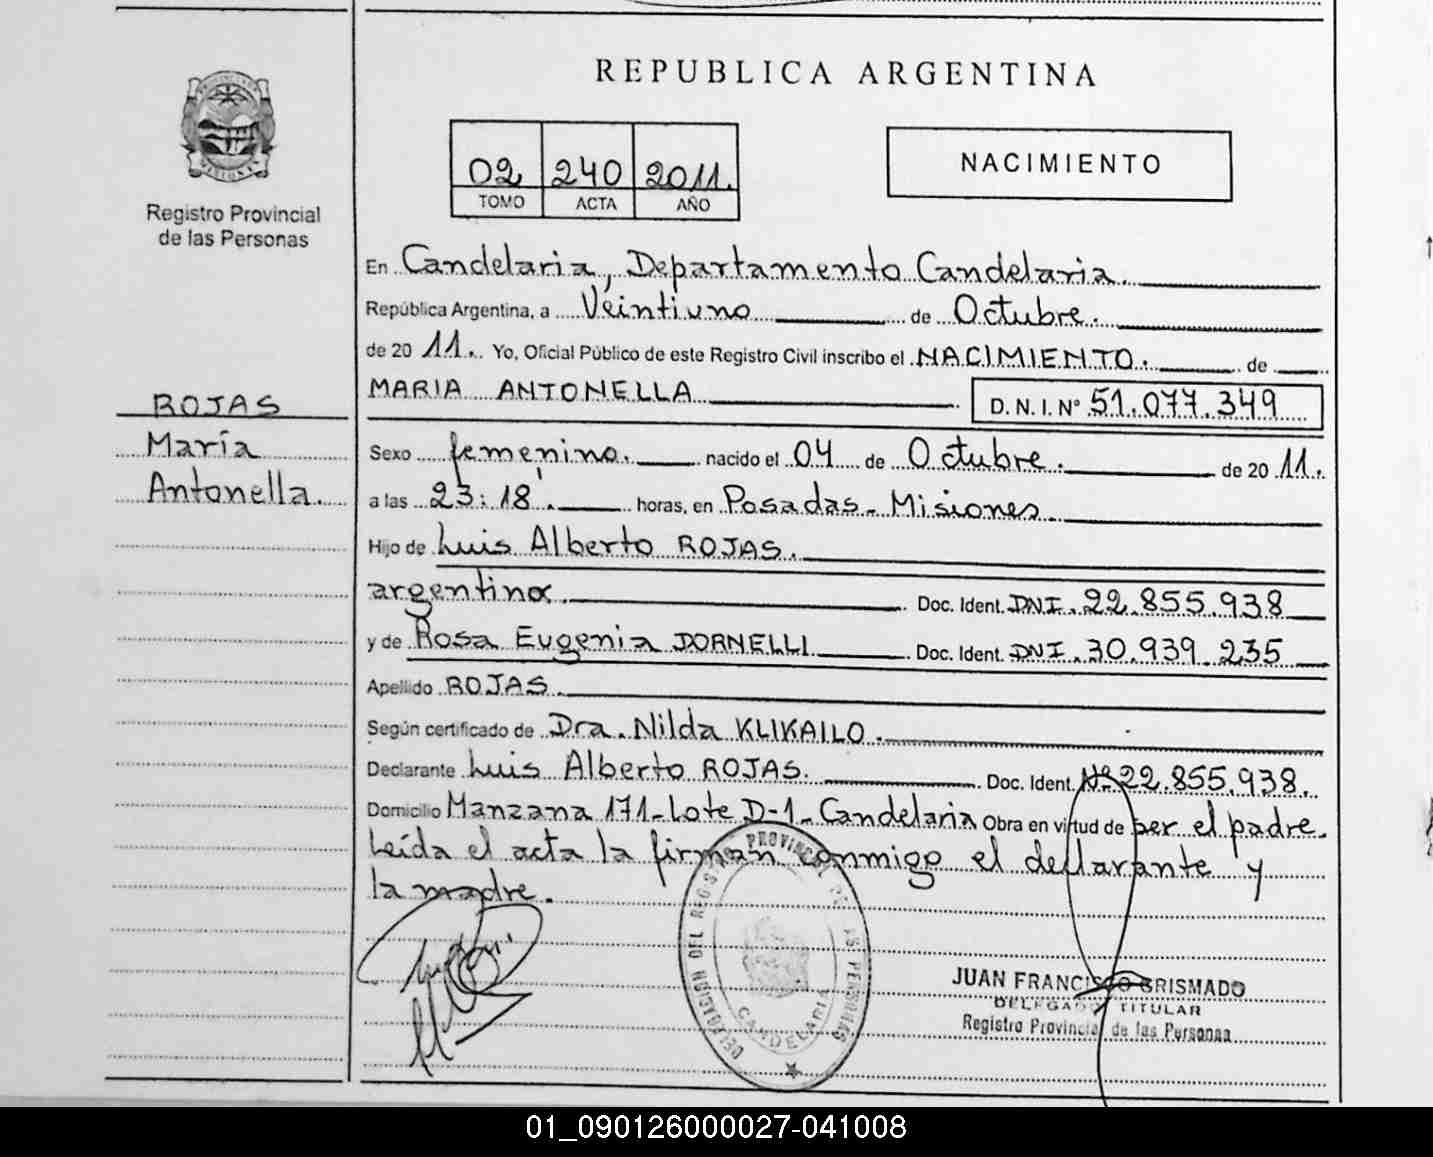 REPUBLICA ARGENTINA
Registro Provincial
de las Personas
02 240 2011.
TOMO ACTA AÑO
NACIMIENTO
ROJAS
María
Antonella.
En Candelaria, Departamento Candelaria.
República Argentina, a Veintiuno de Octubre.
de 20 11. Yo, Oficial Público de este Registro Civil inscribo el NACIMIENTO. de
MARIA ANTONELLA D.N.I. Nº 51.077.349
Sexo femenino. nacido el 04 de Octubre. de 20 11.
a las 23:18'. horas, en Posadas - Misiones.
Hijo de Luis Alberto ROJAS.
argentino. Doc. Ident. DNI. 22.855.938
y de Rosa Eugenia DORNELLI Doc. Ident. DNI. 30.939.235
Apellido ROJAS.
Según certificado de Dra. Nilda KLIKAILO.
Declarante Luis Alberto ROJAS. Doc. Ident. Nº 22.855.938.
Domicilio Manzana 171 - Lote D-1 - Candelaria Obra en virtud de ser el padre.
Leída el acta la firman conmigo el declarante y
la madre.
DELEGACION DEL REGISTRO PROVINCIAL DE LAS PERSONAS
CANDELARIA
JUAN FRANCISCO GRISMADO
DELEGADO TITULAR
Registro Provincial de las Personas
01_090126000027-041008